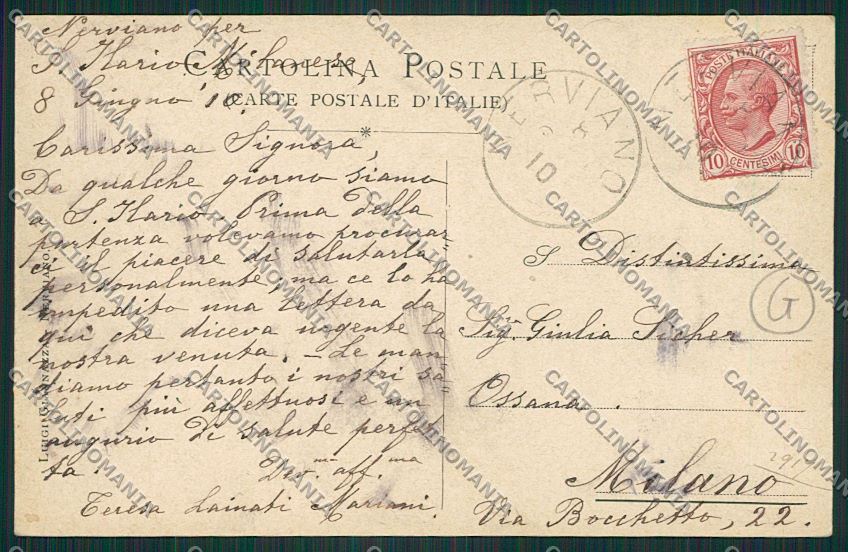 Nerviano per
S. Ilario Milanese,
8 Giugno '10.
CARTOLINA POSTALE
(CARTE POSTALE D'ITALIE)
Carissima Signora,
Da qualche giorno siamo
a S. Ilario. Prima della
partenza volevamo procurar=
ci il piacere di salutarla
personalmente, ma ce lo ha
impedito una lettera da
qui che diceva urgente la
nostra venuta. — Le man=
diamo pertanto i nostri sa=
luti più affettuosi e un
augurio di salute perfet=
ta. Dev.ma aff.ma
Teresa Lainati Mariani.
NERVIANO
8 10
POSTE ITALIANE
10 CENTESIMI 10
NERVIANO
Distintissima
Sig.ra Giulia Sicher
Ossana.
Milano
Via Bocchetto, 22.
G
LUIGI NERVIANO
CARTOLINOMANIA